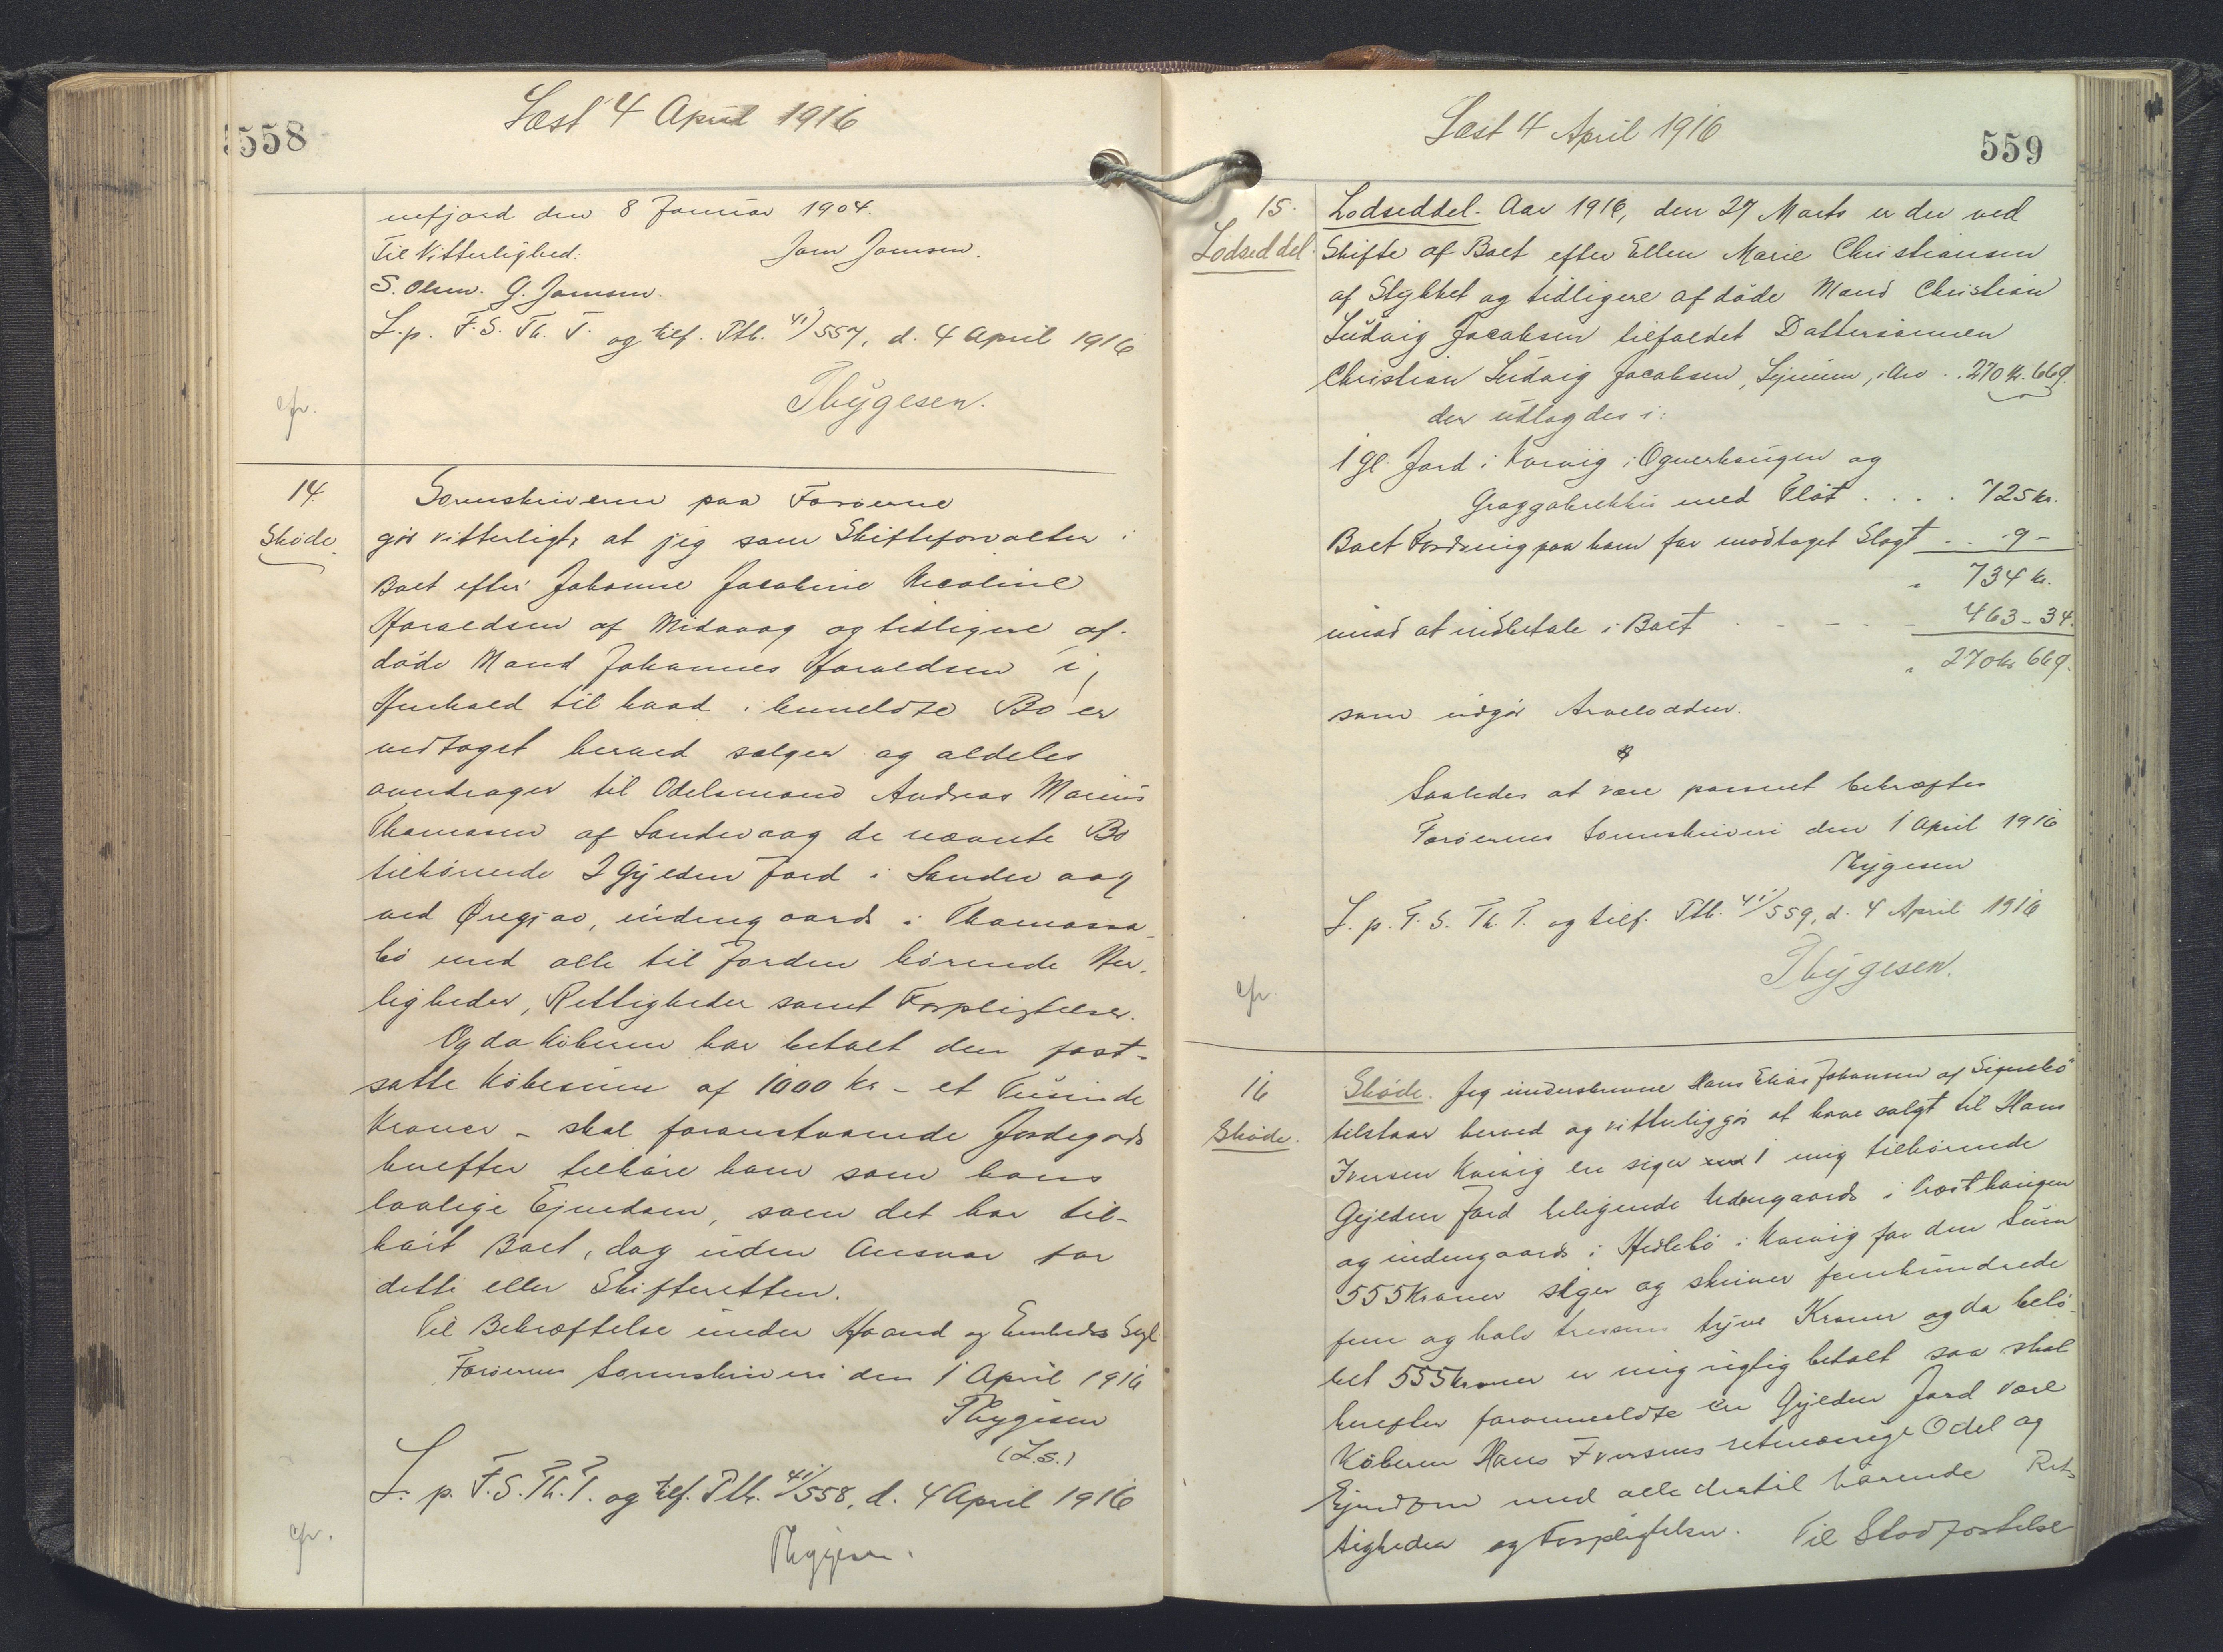 558
Læst 4 April 1916
nefjord den 8 Januar 1904.
Til Vitterlighed: Joen Joensen.
S. Olsen. G. Joensen.
L. p. F. S. Th. T. og tilf. Ptb. 41/557, d. 4 April 1916
Thygesen.
cfr.
14.
Skøde.
Sorenskriveren paa Færøerne
gør vitterligt, at jeg som Skifteforvalter i
Boet efter Johanne Jacobine Nicoline
Haraldsen af Midvaag og tidligere af-
døde Mand Johannes Haraldsen i
Henhold til hvad i bemeldte Bo er
vedtaget herved sælger og aldeles
overdrager til Odelsmand Andreas Marius
Thomasen af Sandevaag de nævnte Bo
tilhørende 2 Gylden Jord i Sandevaag
ved Øregjov, indengaards i Thomassa-
bø med alle til Jorden hørende Her-
ligheder, Rettigheder samt Forpligtelser.
Og da Køberen har betalt den fast-
satte Købesum af 1000 Kr - et Tusinde
Kroner - skal foranstaaende Jordegods
herefter tilhøre ham som hans
lovlige Ejendom, som det har til-
hørt Boet, dog uden Ansvar for
dette eller Skifteretten.
Til Bekræftelse under Haand og Embeds Segl
Færøernes Sorenskriveri den 1 April 1916
Thygesen
(L.S.)
L. p. F. S. Th. T. og tilf. Ptb. 41/558, d. 4 April 1916
Thygesen.
cfr.
Læst 4 April 1916
559
15.
Lodseddel.
Lodseddel. Aar 1916, den 27 Marts er der ved
Skifte af Boet efter Ellen Marie Christiansen
af Stykket og tidligere afdøde Mand Christian
Ludvig Jacobsen tilfaldet Dattersønnen
Christian Ludvig Jacobsen, Lejnum, i Arv . . 270 Kr. 66 Ø.
der udlagdes i:
1 Gl. Jord i Kvivig i Ognerhaugen og
med Fløt . . . . 725 Kr.
Boet Fordring paa ham for modtaget Slagt . . 9 -
" 734 Kr.
imod at indbetale i Boet - - - - - 463 - 34.
" 270 Kr 66 Ø.
som udgør Arvelodden.
Saaledes at være passeret bekræftes
Færøernes Sorenskriveri den 1 April 1916
Thygesen
L. p. F. S. Th. T. og tilf. Ptb. 41/559, d. 4 April 1916
Thygesen.
cfr
16
Skøde.
Skøde. Jeg underskrevne Hans Elias Johansen af Signebø
tilstaar herved og vitterliggør at have solgt til Hans
Iversen Kvivig en siger 1 mig tilhørende
Gylden Jord beligende Udengaards i
og indengaards i Heslebø i Kvivig for den Sum
555 Kroner siger og skriver femhundrede
fem og halv tresens tyve Kroner og da belø-
bet 555 Kroner er mig rigtig betalt saa skal
herefter foranmeldte en Gylden Jord være
Køberen Hans Iversens retmæssige Odel og
Ejendom med alle dertil hørende Ret-
tigheder og Forpligtelser. Til Stadfæstelse